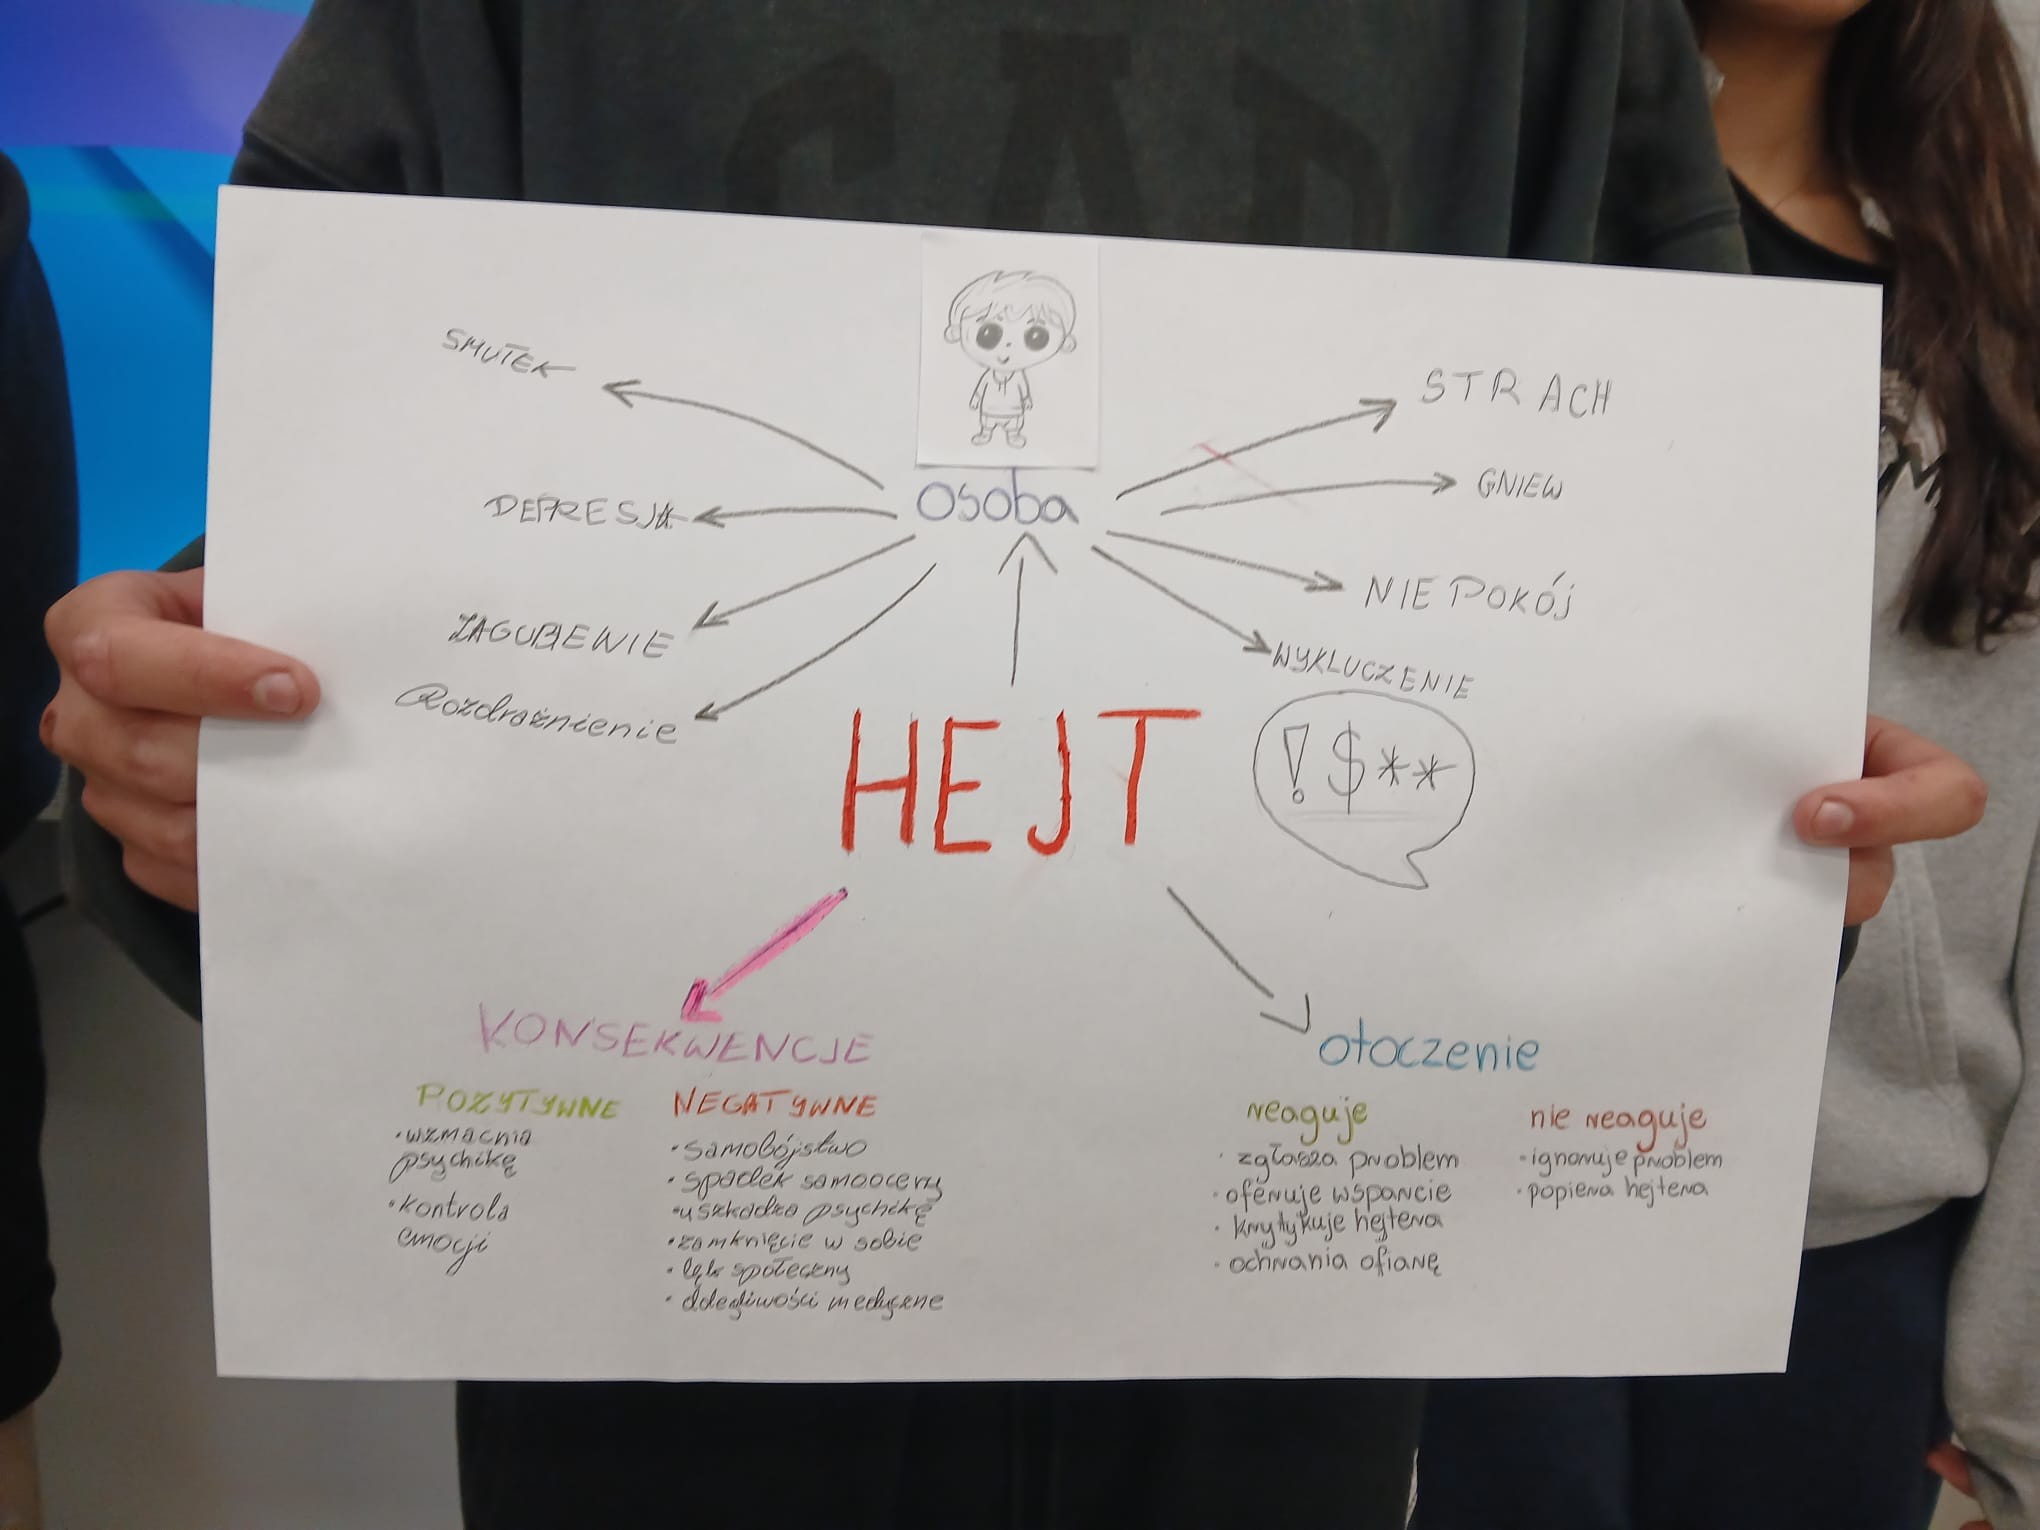 SMUTEK
DEPRESJA
ZAGUBIENIE
Rozdrażnienie
osoba
STRACH
GNIEW
NIEPOKÓJ
WYKLUCZENIE
HEJT
!$**
KONSEKWENCJE
POZYTYWNE
•wzmacnia
psychikę
•kontrola
emocji
NEGATYWNE
•samobójstwo
•spadek samooceny
•uszkadza psychikę
•zamknięcie w sobie
•lęk społeczny
•dolegliwości medyczne
otoczenie
reaguje
•zgłasza problem
•oferuje wsparcie
•krytykuje hejtera
•ochrania ofiarę
nie reaguje
•ignoruje problem
•popiera hejtera